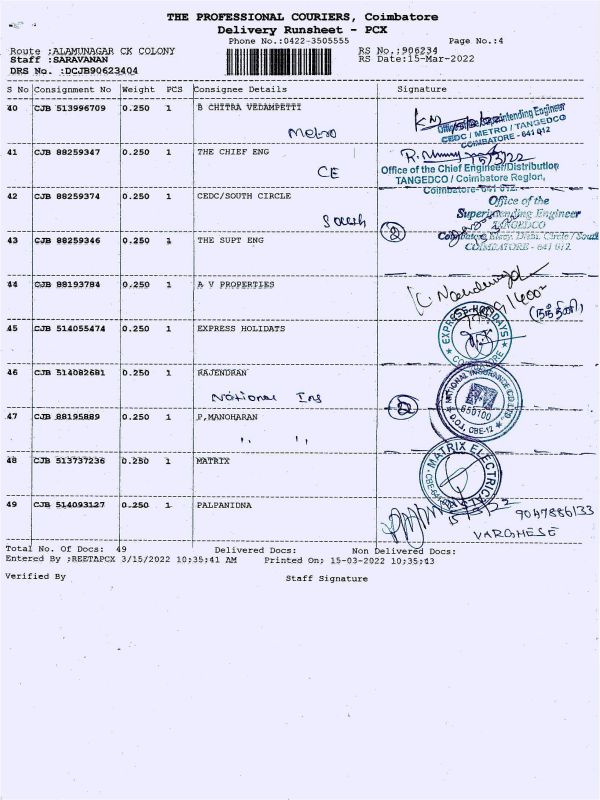 THE PROFESSIONAL COURIERS, Coimbatore
Delivery Runsheet - PCX
Phone No.:0422-3505555 Page No.:4
Route :ALAMUNAGAR CK COLONY RS No.:906234
Staff :SARAVANAN RS Date:15-Mar-2022
DRS No. :DCJB90623404
S No Consignment No Weight PCS Consignee Details Signature
40 CJB 513996709 0.250 1 B CHITRA VEDAMPETTI
Metro
Superintending Engineer
CEDC / METRO / TANGEDCO
COIMBATORE - 641 012
41 CJB 88259347 0.250 1 THE CHIEF ENG
CE
15/3/22
Office of the Chief Engineer/Distribution
TANGEDCO / Coimbatore Region,
Coimbatore- 641 012.
42 CJB 88259374 0.250 1 CEDC/SOUTH CIRCLE
South
Office of the
Superintending Engineer
TANGEDCO
COIMBATORE - 641 012.
2
43 CJB 88259346 0.250 1 THE SUPT ENG
44 CJB 88193784 0.250 1 A V PROPERTIES
(நந்தினி)
45 CJB 514055474 0.250 1 EXPRESS HOLIDATS
EXPRESS HOLIDAYS
COIMBATORE
46 CJB 514082681 0.250 1 RAJENDRAN
National Ins
2
NATIONAL INSURANCE CO.LTD
650100
D.O.I. CBE-12
47 CJB 88195889 0.250 1 P,MANOHARAN
" "
48 CJB 513737236 0.250 1 MATRIX
MATRIX ELECTRICAL
49 CJB 514093127 0.250 1 PALPANIDNA
15/3/22
9047886133
VARGHESE
Total No. Of Docs: 49 Delivered Docs: Non Delivered Docs:
Entered By :REETAPCX 3/15/2022 10:35:41 AM Printed On; 15-03-2022 10:35:43
Verified By Staff Signature